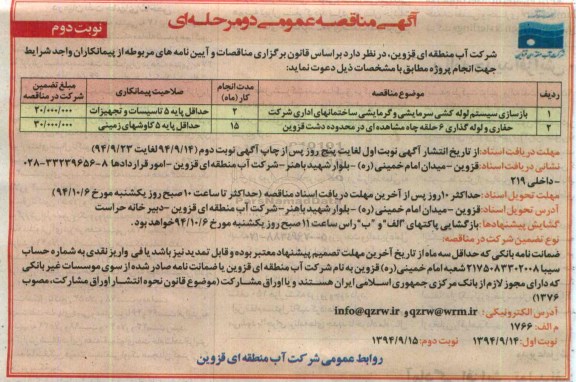 آگهی مناقصه عمومی دو مرحله ای
نوبت دوم
شرکت آب منطقه ای قزوین، در نظر دارد براساس قانون برگزاری مناقصات و آیین نامه های مربوطه از پیمانکاران واجد شرایط
جهت انجام پروژه مطابق با مشخصات ذیل دعوت نماید:
ردیف موضوع مناقصه مدت انجام کار (ماه) صلاحیت پیمانکاری مبلغ تضمین شرکت در مناقصه
۱ بازسازی سیستم لوله کشی سرمایشی و گرمایشی ساختمانهای اداری شرکت ۲ حداقل پایه ۵ تاسیسات و تجهیزات ۲۰/۰۰۰/۰۰۰
۲ حفاری و لوله گذاری ۶ حلقه چاه مشاهده ای در محدوده دشت قزوین ۱۵ حداقل پایه ۵ کاوشهای زمینی ۳۰/۰۰۰/۰۰۰
مهلت دریافت اسناد: از تاریخ انتشار آگهی نوبت اول لغایت پنج روز پس از چاپ آگهی نوبت دوم (۹۴/۹/۱۴ لغایت ۹۴/۹/۲۳)
نشانی دریافت اسناد: قزوین -میدان امام خمینی (ره) -بلوار شهید باهنر -شرکت آب منطقه ای قزوین -امور قراردادها ۸-۳۳۲۳۹۶۵۶-۰۲۸
-داخلی ۲۱۹
مهلت تحویل اسناد: حداکثر ۱۰ روز پس از آخرین مهلت دریافت اسناد مناقصه (حداکثر تا ساعت ۱۰ صبح روز یکشنبه مورخ ۹۴/۱۰/۶)
آدرس تحویل اسناد: قزوین -میدان امام خمینی (ره) -بلوار شهید باهنر -شرکت آب منطقه ای قزوین -دبیر خانه حراست
گشایش پیشنهادها: بازگشایی پاکتهای "الف" و "ب" راس ساعت ۱۱ صبح روز یکشنبه مورخ ۹۴/۱۰/۶ خواهد بود.
نوع تضمین شرکت در مناقصه:
ضمانت نامه بانکی که حداقل سه ماه از تاریخ آخرین مهلت تصمیم پیشنهاد معتبر بوده و قابل تمدید نیز باشد یا فی واریز نقدی به شماره حساب
سیبا ۲۱۷۵۰۸۳۳۰۲۰۰۸ شعبه امام خمینی (ره) قزوین به نام شرکت آب منطقه ای قزوین یا ضمانت نامه صادر شده از سوی موسسات غیر بانکی
که دارای مجوز لازم از بانک مرکزی جمهوری اسلامی ایران هستند و یا اوراق مشارکت (موضوع قانون نحوه انتشار اوراق مشارکت، مصوب
۱۳۷۶)
آدرس الکترونیکی: info@qzrw.ir و qzrw@wrm.ir
م الف: ۱۷۶۶
نوبت اول: ۱۳۹۴/۹/۱۴ نوبت دوم: ۱۳۹۴/۹/۱۵
روابط عمومی شرکت آب منطقه ای قزوین